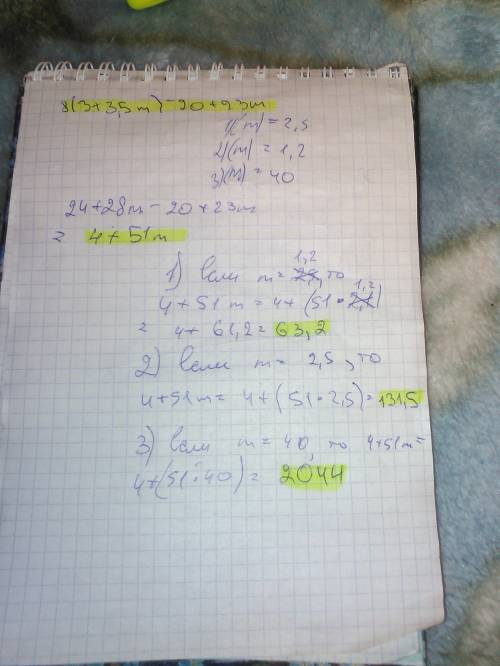 8(3+3,5m)-20+23m
1)(m)=2,5
2)(m)=1,2
3)(m)=40
24+28m-20+23m
= 4+51m
1) если m=1,2, то
4+51m=4+(51·1,2)
= 4+61,2=63,2
2) если m= 2,5, то
4+51m= 4+(51·2,5)=131,5
3) если m=40, то 4+51m=
4+(51·40)= 2044